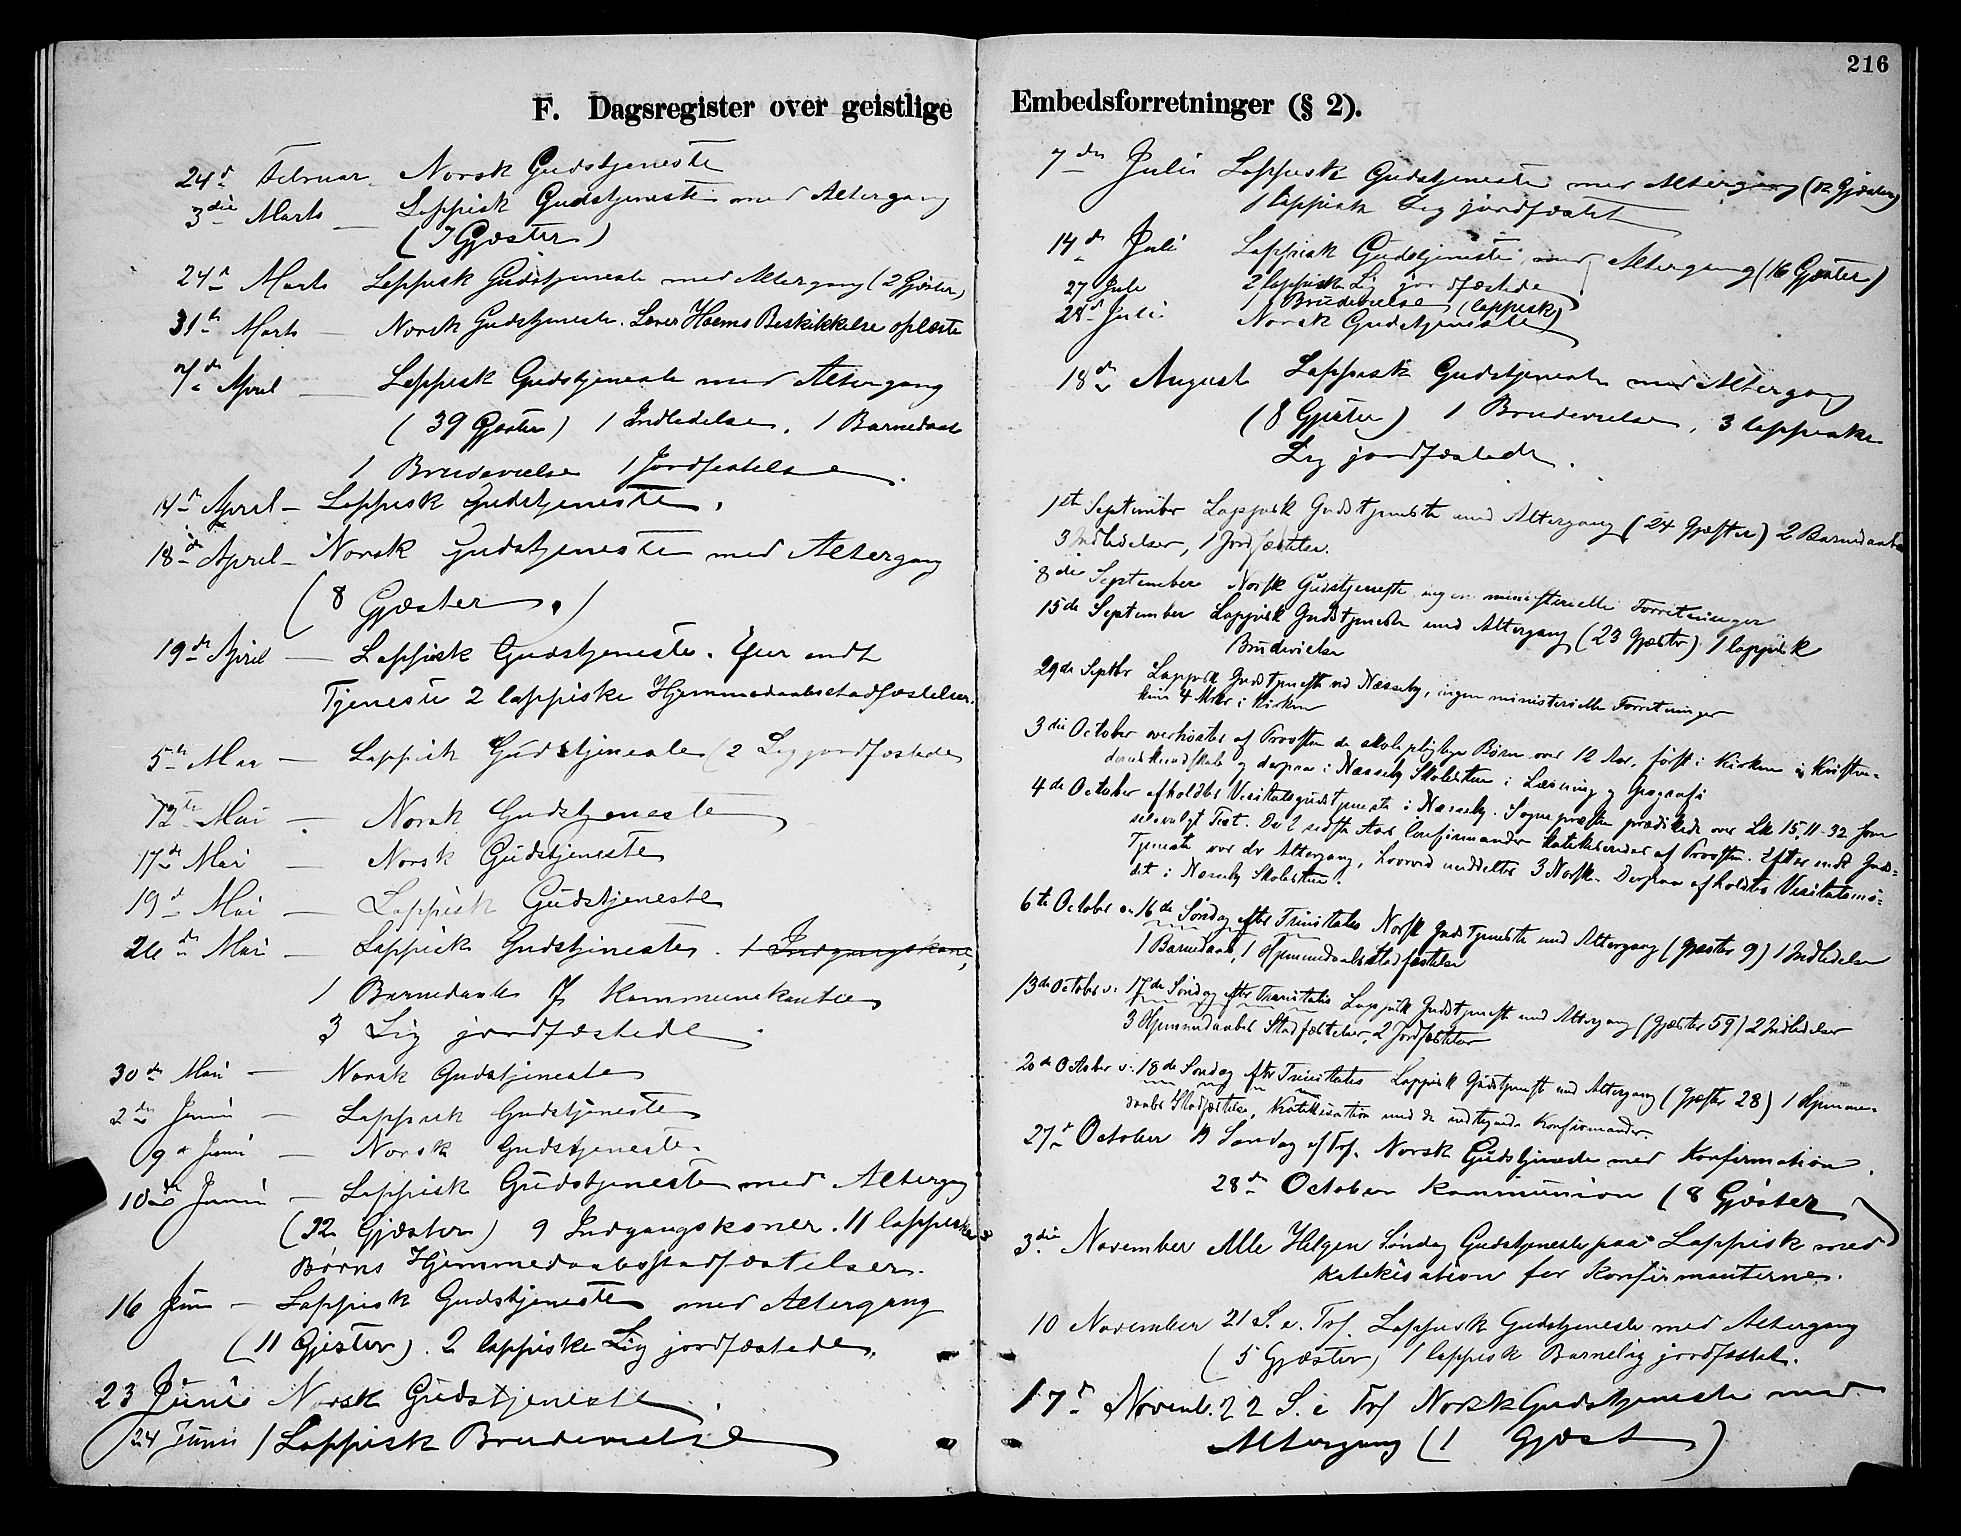 216
F. Dagsregister over geistlige Embedsforretninger (§ 2).
24d Februar - Norsk Gudstjeneste
3die Marts - Lappisk Gudstjeneste med Altergang
(7 Gjæster)
24d Marts Lappisk Gudstjeneste med Altergang (2 Gjæster)
31te Marts - Norsk Gudstjeneste. Lærer Beskikkelse oplæste
7de April - Lappisk Gudstjeneste med Altergang
(39 Gjæster) 1 Indledelse. 1 Barnedaab
1 Brudevielse 1 Jordfæstelse.
14d April - Lappisk Gudstjeneste.
18de April - Norsk Gudstjeneste med Altergang
(8 Gjæster.)
19de April - Lappisk Gudstjeneste. Efter endt
Tjeneste 2 lappiske Hjemmedaabsstadfæstelser.
5te Mai - Lappisk Gudstjeneste (2 Lig jordfæstede
12te Mai - Norsk Gudstjeneste
17de Mai - Norsk Gudstjeneste
19d Mai - Lappisk Gudstjeneste
26de Mai - Lappisk Gudstjeneste. 1 Indgangskone,
1 Barnedaab 7 Kommunikantee
3 Lig jordfæstede.
30de Mai - Norsk Gudstjeneste
2den Juni - Lappisk Gudstjeneste
9d Juni - Norsk Gudstjeneste
10de Juni - Lappisk Gudstjeneste med Altergag
(32 Gjæster) 9 Indgangskoner. 11 lappiske
Børns Hjemmedaabsstadfæstelser.
16 Juni - Lappisk Gudstjeneste med Altergang
(11 Gjæster). 2 lappiske Lig jordfæstede.
23 Juni Norsk Gudstjeneste.
24 Juni 1 Lappisk Brudevielse
7de Juli Lappisk Gudstjeneste med Altergang (12 Gjæster)
1 lappisk Lig jordfæstet
14de Juli Lappisk Gudstjeneste med Altergang (16 Gjæster)
2 lappiske Lig jordfæstede
27 Juli 1 Brudevielse (lappisk)
28d Juli Norsk Gudstjeneste
18de August Lappisk Gudstjeneste med Altergang
(8 Gjæster) 1 Brudevielse, 3 lappiske
Lig jordfæstede.
1ste September Lappisk Gudstjeneste med Altergang (24 Gjæster) 2 Barnedaab
3 Indledelser, 1 Jordfæstelse.
8die September Norsk Gudstjeneste, ingen ministerielle Forretninger
15de September Lappisk Gudstjeneste med Altergang (23 Gjæster) 1 lappisk
Brudevielse
29de Septbr Lappisk Gudstjeneste ved Næsseby, ingen ministerielle Forretninger
kun 4 i Kirken
3die October overhørtes af Provsten de skolepligtige Børn over 12 Aar, først i Kirken i Kristen-
domskundskab og derpaa i Næsseby Skolestue i Læsning og Geografi
4de October afholdtes Visitatsgudstjeneste i Næsseby. Sognepræsten prædikede over Lk 15, 11-32 som
selvvalgt Text. De 2 sidste Aars Confirmander katekiseredes af Provsten. Efter endt Guds-
Tjeneste var der Altergang, hvorved meddeltes 3 Norske. Derpaa afholdtes Visitatsmø-
det i Næsseby Skolestue.
6te October o: 16de Søndag efter Trinitatis Norsk Gudstjeneste med Altergang (Gjæster 9) 1 Indledelse
1 Barnedaab, 1 Hjemmedaabsstadfæstelse
13de October o: 17de Søndag efter Trinitatis Lappisk Gudstjeneste med Altergang (Gjæster 59) 2 Indledelser
3 Hjemmedaabs Stadfæstelser, 2 Jordfæstelser
20de October o: 18de Søndag efter Trinitatis Lappisk Gudstjeneste med Altergang (Gjæster 28) 1 Hjemme-
daabs Stadfæstelse, Katekisation med de Konfirmander.
27d October 19 Søndag ef Trf. Norsk Gudstjeneste med Konfirmation.
28de October Kommunion (8 Gjæster)
3die November Alle Helgen Søndag Gudstjeneste paa Lappisk med
Katekisation for Konfirmanterne.
10 November 21 S. e. Trf. Lappisk Gudstjeneste med Altergang
(5 Gjæster) 1 lappisk Barnelig jordfæstet.
17d Novemb. 22 S. e Trf Norsk Gudstjeneste med
Altergang (1 Gjæst)